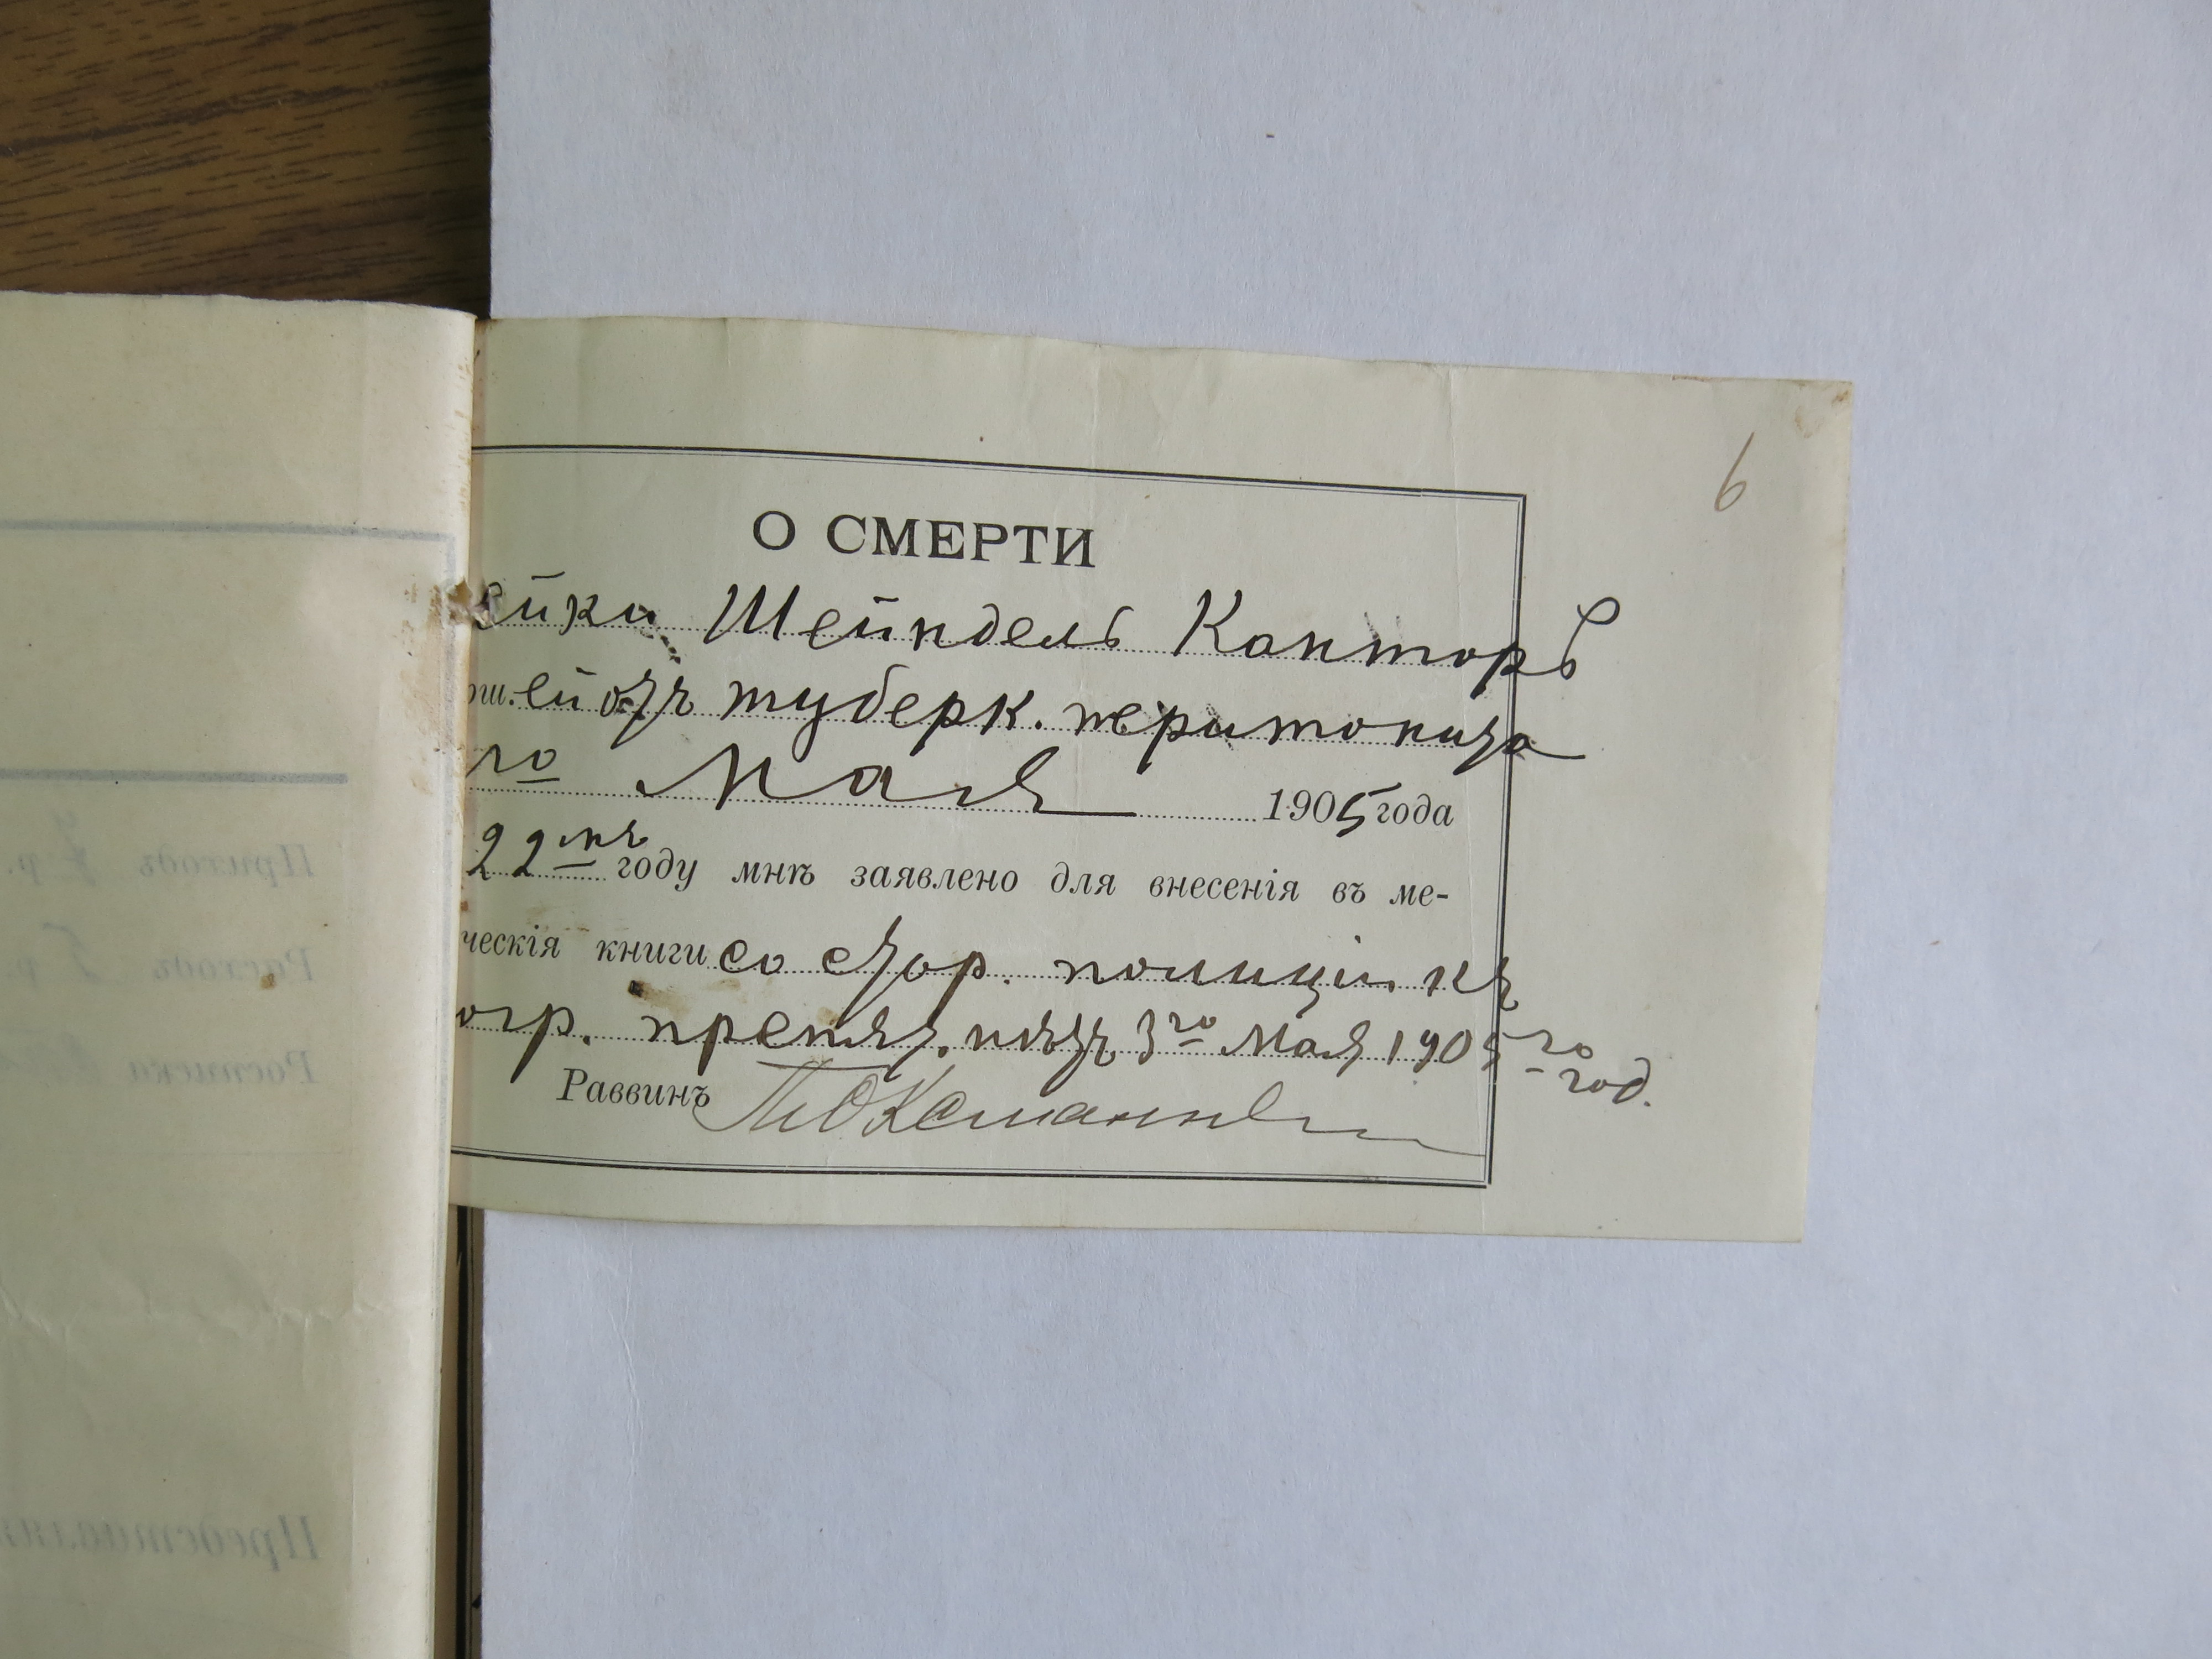 6
О СМЕРТИ
ейки Шейндель Канторъ
ш.ей отъ туберк. перитонита
го Мая 1905 года
22мъ году мнѣ заявлено для внесенія въ ме-
ческія книги со стор. полиціи къ
огр. препят. нѣтъ 3го Мая 1905 го
год.
Раввинъ
Приходъ
Расходъ
Росписка